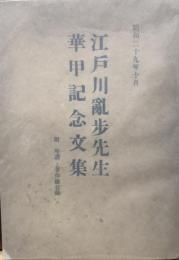 昭和二十九年十月
江戸川亂步先生
華甲記念文集
附 年譜・著作目錄